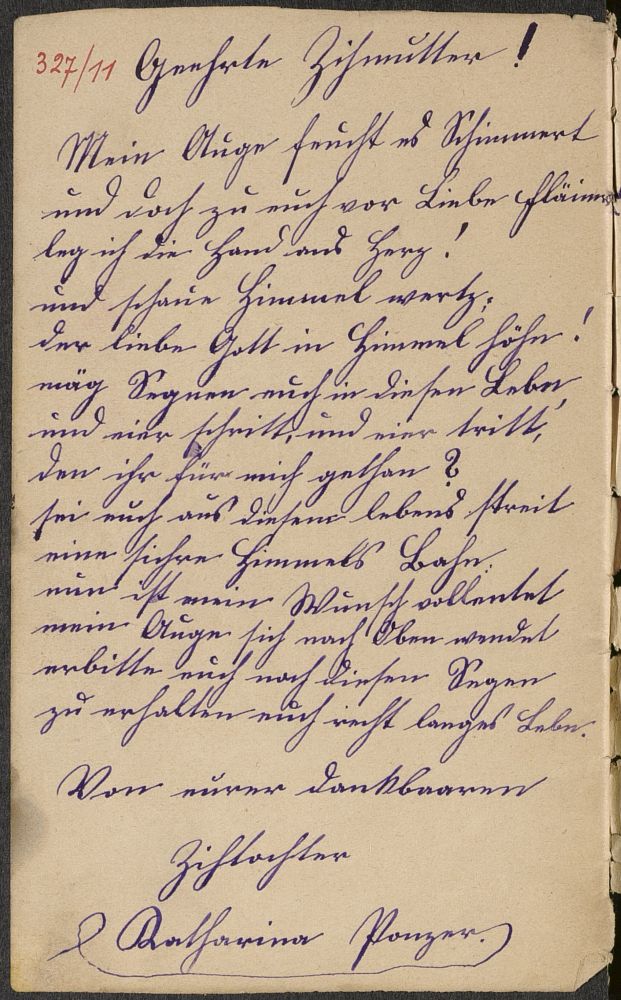 327/11 Geehrte Zihmutter!
Mein Auge feucht es Schimmert
und doch zu euch vor Liebe
leg ich die Hand ans Herz!
und schaue Himmel wertz;
der liebe Gott in Himmel höhn!
mäg Segnen euch in diesen Lebn,
und eier schritt, und eier tritt,
den ihr für mich gethan ?
sei euch aus diesem lebens streit
eine sichre Himmels Bahn.
nun ist mein Wunsch vollentet
mein Auge sich nach Oben wendet
erbitte euch noch diesen Segen
zu erhalten euch recht langes Lebn.
Von eurer dankbaaren
Zihtochter
Katharina Ponzer.